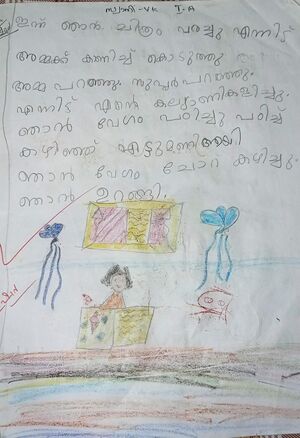 സ്വാനി-VK I-A
ഇന്ന് ഞാൻ ചിത്രം വരച്ചു എന്നിട്ട്
അമ്മക്ക് കണിച്ച് കൊടുത്തു
അമ്മ പറഞ്ഞു സൂപ്പർ പറഞ്ഞു.
എന്നിട്ട് ഏതൻ കല്യാണികളിച്ചു.
ഞാൻ വേഗം പഠിച്ചു പഠിച്ച്
കഴിഞ്ഞ് എട്ടുമണിആയി
ഞാൻ വേഗം ചോറ് കഴിച്ചു.
ഞാൻ ഉറങ്ങി.